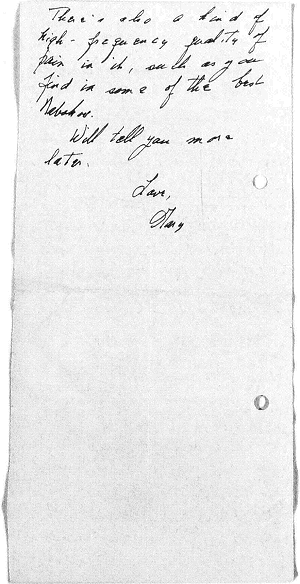 There's also a kind of
high-frequency quality of
pain in it, such as you
find in some of the best
Nabokov.
Will tell you more
later.
Love,
Mary